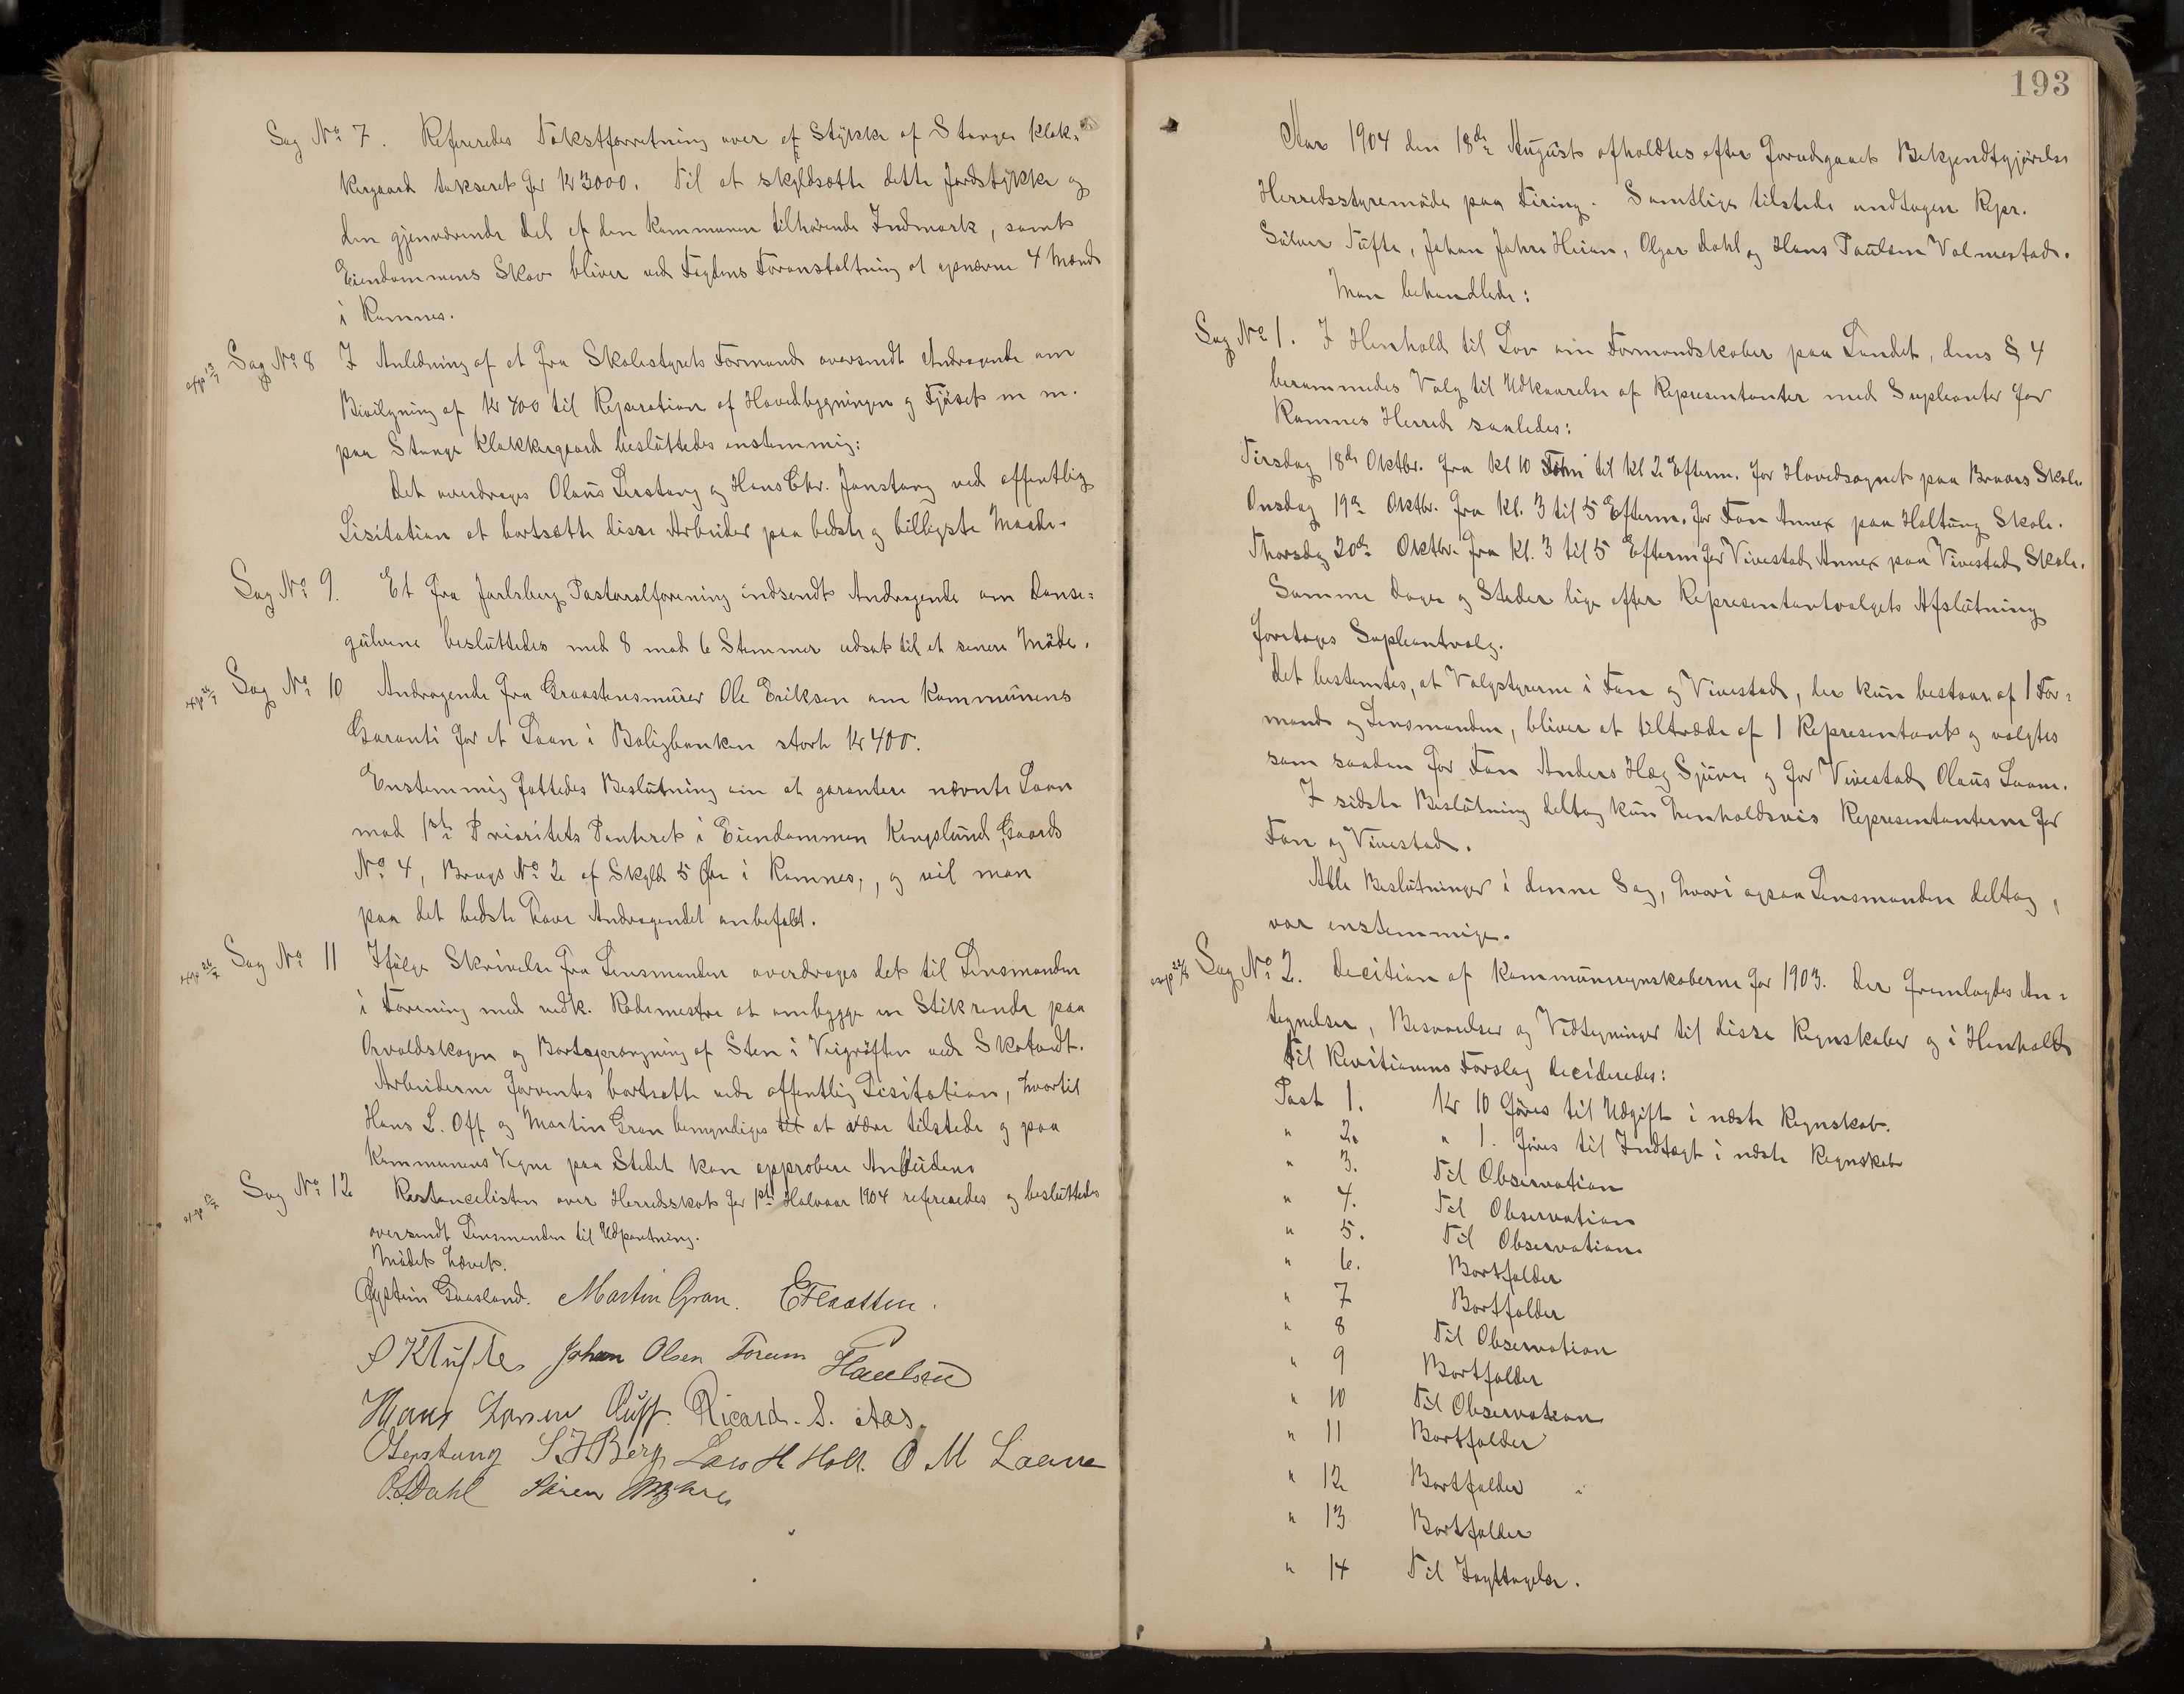 Sag No 7. Refereredes Takstforretning over et Stykke af Stange Klok-
kergaard takseret for Kr 3000. Til at skyldsætte dette Jordstykke og
den gjenværende del af den Kommunen tilhørende Indmark, samt
Eiendommens Skov bliver ved Fogdens Foranstaltning at opnævne 4 Mænd
i Ramnes.
exp 13/7 Sag No 8 I Anledning af et fra Skolestyrets Formand oversendt Andragende om
Bevilgning af Kr 400 til Reparation af Hovedbygningen og Fjöset m m.
paa Stange Klokkergaard besluttedes enstemmig:
Det overdrages Olaus Lerstang og Hans Chr. Jonstang ved offentlig
Lisitation at bortsætte disse Arbeider paa bedste og billigste Maade.
Sag No 9. Et fra Jarlsberg Pastoralforening indsendt Andragende om Danse-
gulvene besluttedes med 8 mod 6 Stemmer udsat til et senere Möde.
exp 26/7 Sag No 10 Andragende fra Graastensmurer Ole Eriksen om Kommunens
Garanti for et Laan i Boligbanken stort Kr 400.
Enstemmig fattedes Beslutning om at garantere nævnte Laan
mod 1ste Prioritets Panteret i Eiendommen Kongslund, Gaards
No 4, Brugs No 2 af Skyld 5 Øre i Ramnes, og vil man
paa det bedste have Andragendet anbefalet.
exp 26/7 Sag No 11 Ifölge Skrivelse fra Lensmanden overdrages det til Lensmanden
i Forening med vedk. Rodemestre at ombygge en Stikrende paa
Orvaldskogen og Bortsprængning af Sten i Veigröften ved Skotvedt.
Arbeiderne forventes bortsatte ved offentlig Lisitation, hvortil
Hans L. Off og Martin Gran bemyndiges til at være tilstede og paa
Kommunens Vegne paa Stedet kan approbere Anbudene
exp 13/7 Sag No 12 Restancelisten over Herredsskat for 1ste Halvaar 1904 refereredes og besluttedes
oversendt Lensmanden til Udpantning.
Mödet hævet.
Øystein Gaasland. Martin Gran. E Flaatten.
S K Tufte Johan Olsen Foreum Paulsen
Hans Larsen Ouff. Ricard. S. Aas.
O Lerstang S. J. Berg Lars H Holt. O M Laane
O. Dahl Sören
193
Aar 1904 den 18de August afholdtes efter forudgaaet Bekjendtgjörelse
Herredsstyremöde paa Firing. Samtlige tilstede undtagen Repr.
Sölver Tufte, Johan Jahre Heian, Olgar Dahl og Hans Paulsen Valmestad.
Man behandlede:
Sag No 1. I Henhold til Lov om Formandskaber paa Landet, dens § 4
berammedes Valg til Udkaarelse af Repræsentanter med Supleanter for
Ramnes Herred saaledes:
Tirsdag 18de Oktbr. fra Kl 10 Form til Kl 2 Efterm. for Hovedsognet paa Braars Skole.
Onsdag 19de Oktbr. fra Kl. 3 til 5 Efterm. for Fon Annex paa Haltung Skole.
Thorsdag 20de Oktbr. fra Kl. 3 til 5 Efterm for Vivestad Annex paa Vivestad Skole.
Samme Dage og Steder lige efter Repræsentantvalgets Afslutning
foretages Supleantvalg.
Det bestemtes, at Valgstyrerne i Fon og Vivestad, der kun bestaar af 1 For-
mand og Lensmanden, bliver at tiltræde af 1 Repræsentant og valgtes
som saadan for Fon Anders Hæg Sjuve og for Vivestad Olaus Laane.
I sidste Beslutning deltog kun henholdsvis Repræsentanterne for
Fon og Vivestad.
Alle Beslutninger i denne Sag, hvori ogsaa Lensmanden deltog,
var enstemmige.
exp 22/8 Sag No 2. Decition af Kommuneregnskaberne for 1903. Der fremlagdes An-
tegnelser, Besvarelser og Vedtegninger til disse Regnskaber og i Henhold
til Revitionens Forslag decideredes:
Post 1. Kr 10 føres til Udgift i næste Regnskab.
" 2. " 1. föres til Indtægt i næste Regnskab
" 3. Til Observation
" 4. Til Observation
" 5. Til Observation
" 6. Bortfalder
" 7 Bortfalder
" 8 Til Observation
" 9 Bortfalder
" 10 Til Observation
" 11 Bortfalder
" 12 Bortfalder
" 13 Bortfalder
" 14 Til Iagttagelse.